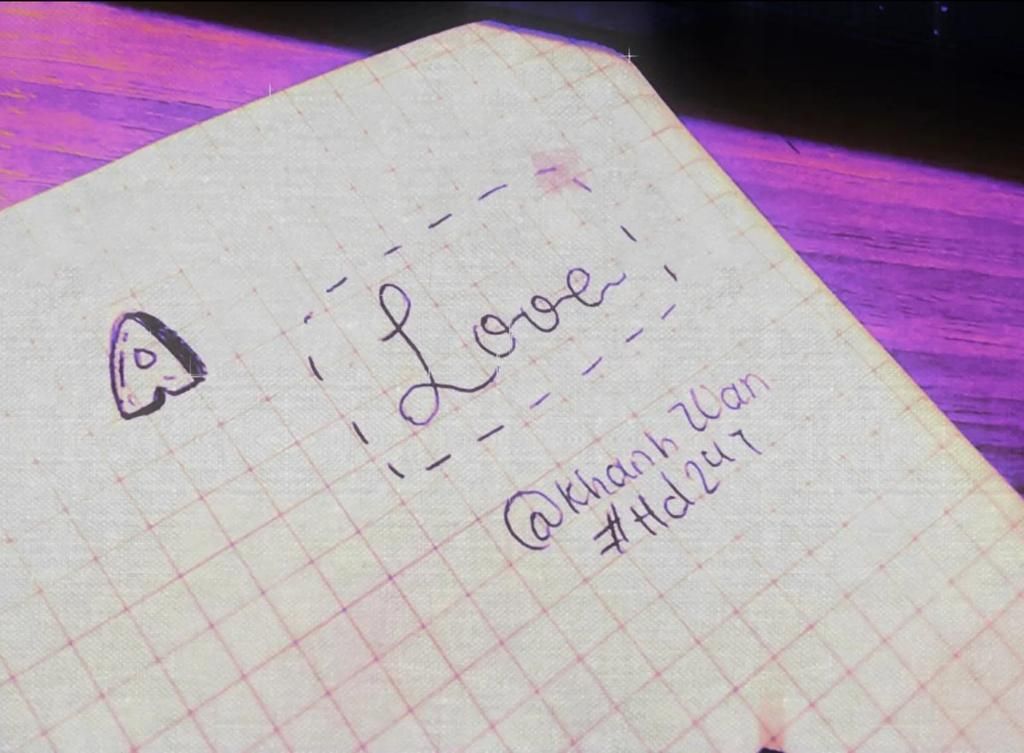 A
Love
@Khanh Wan
#Hd247